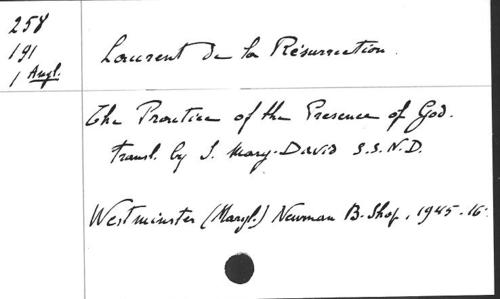 258
191
1 Angl.
Laurent de la Résurrection.
The Practice of the Presence of God.
Transl. by S. Mary-David S.S.N.D.
Westminster (Maryl.) Newman B. Shop, 1945 - 16°